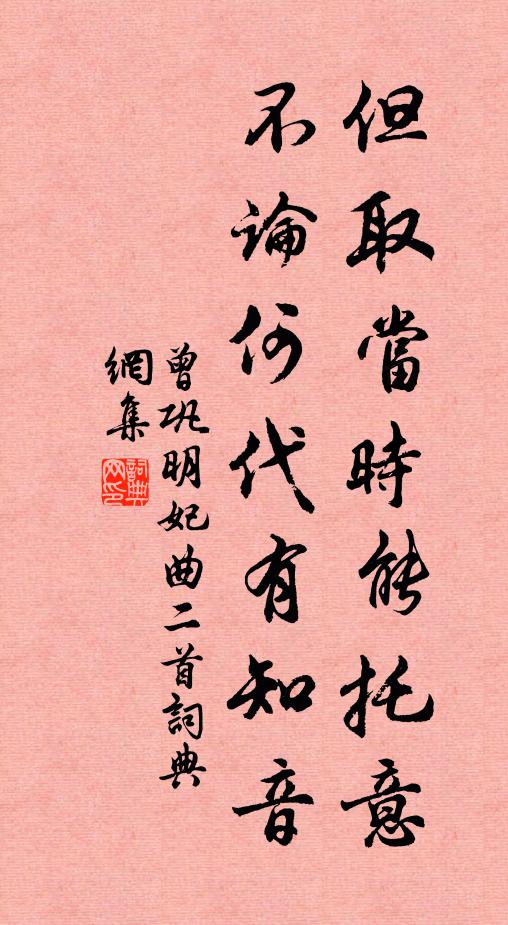 但取當時能托意
不論何代有知音
曾巩明妃曲二首詞典
網集
詞典
网印